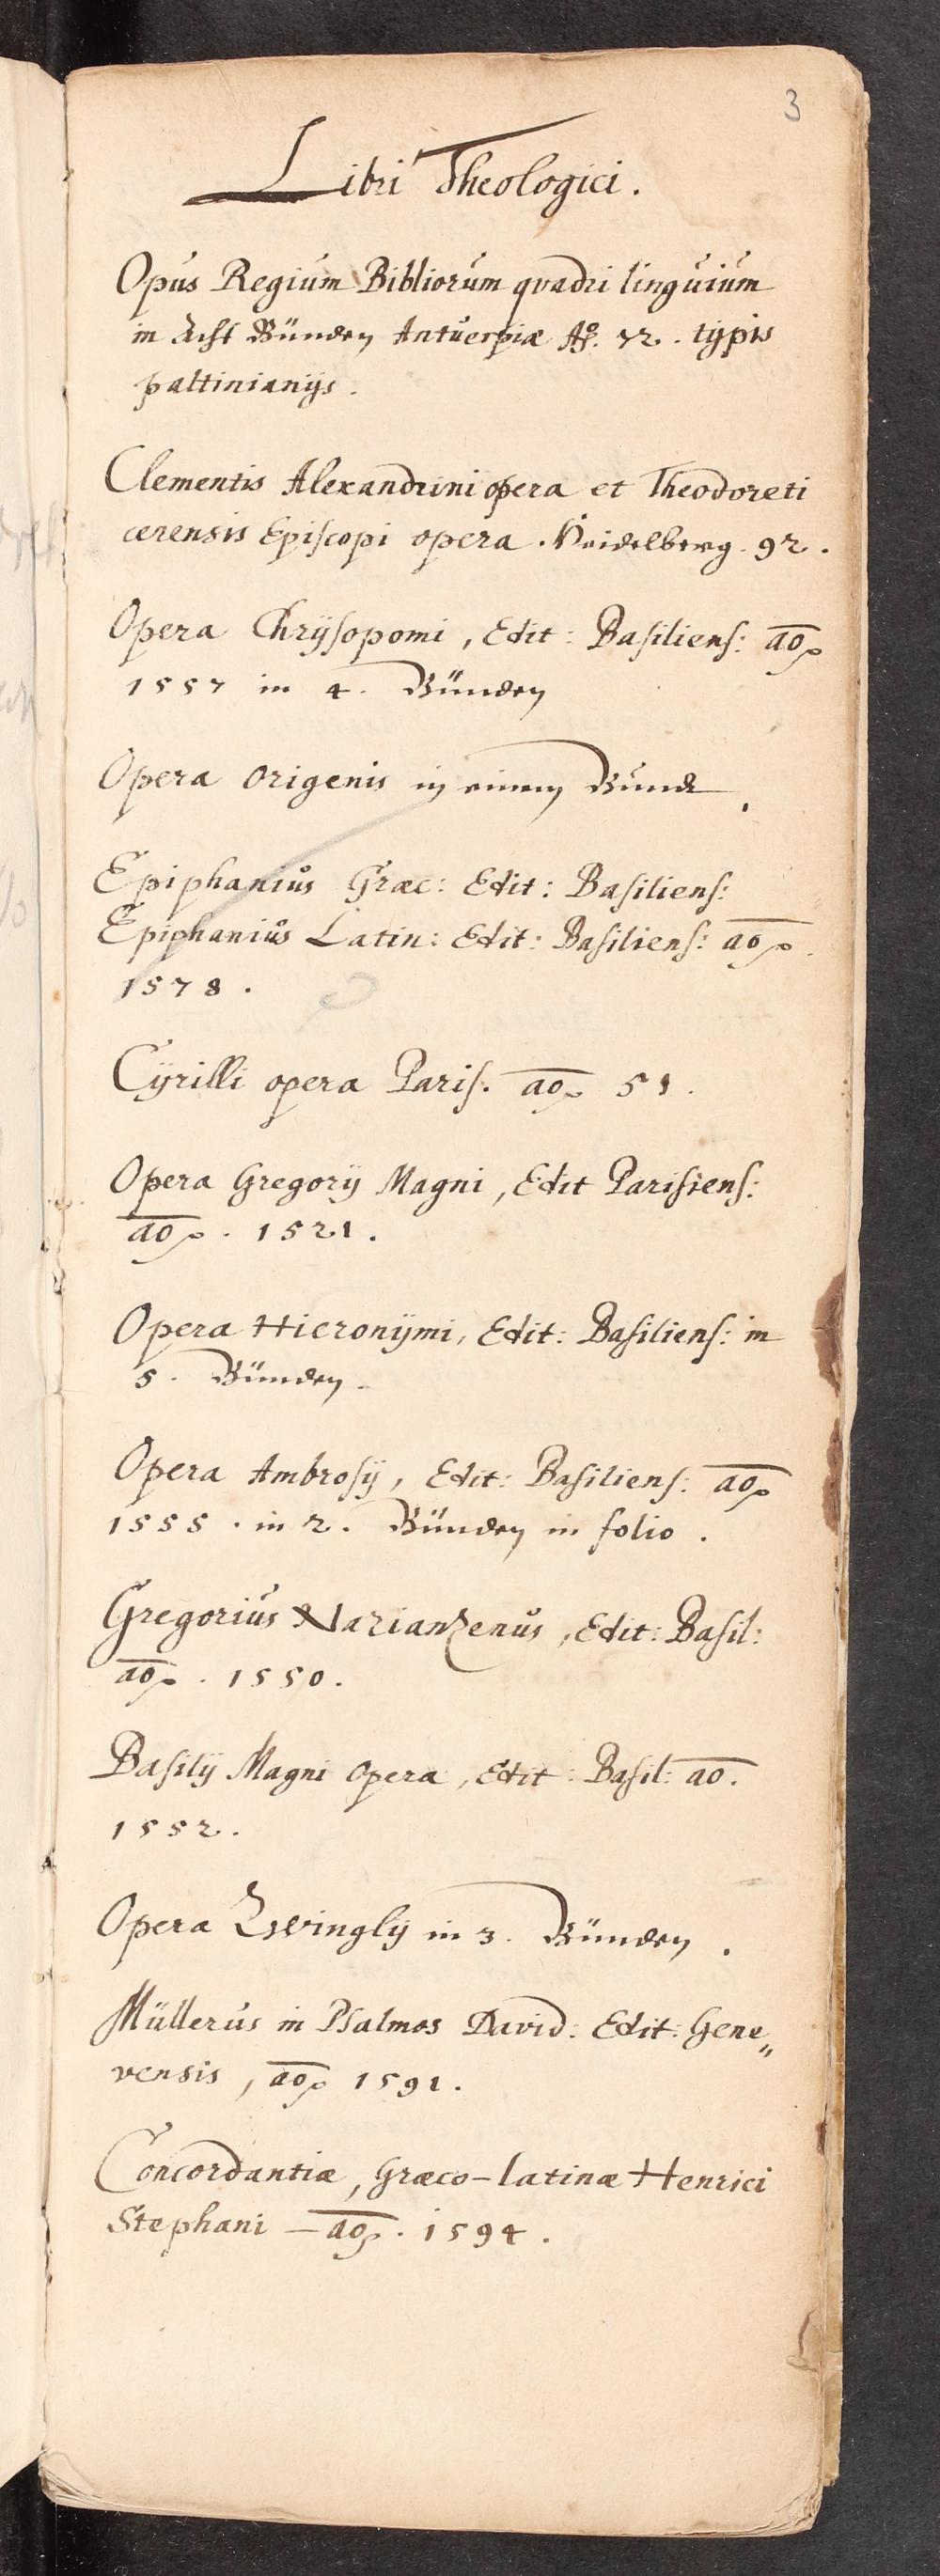 3
Libri Theologici.
Opus Regium Bibliorum qvadri linguium
in Acht Bünden Antuerpiæ Aō. 72. typis
paltinianijs.
Clementis Alexandrini opera et Theodoreti
cerensis Episcopi opera. Heidelberg. 92.
Opera Chrijsopomi, Edit: Basiliens: aō
1557 in 4. Bünden
Opera origenis in einem Bundt.
Epiphanius Græc: Edit: Basiliens:
Epiphanius Latin: Edit: Basiliens: aō.
1578.
Cijrilli opera Paris. aō 51.
Opera Gregorij Magni, Edit Parisiens:
aō. 1521.
Opera Hieronijmi, Edit: Basiliens: in
5. Bünden.
Opera Ambrosij, Edit: Basiliens: aō
1555. in 2. Bünden in folio.
Gregorius Narianzenus, Edit: Basil:
aō. 1550.
Basilij Magni opera, Edit: Basil: aō.
1552.
Opera Zwinglij in 3. Bünden.
Müllerus in Psalmos David: Edit: Gene„
vensis, aō 1591.
Concordantiæ, Græco-latinæ Henrici
Stephani — aō. 1594.